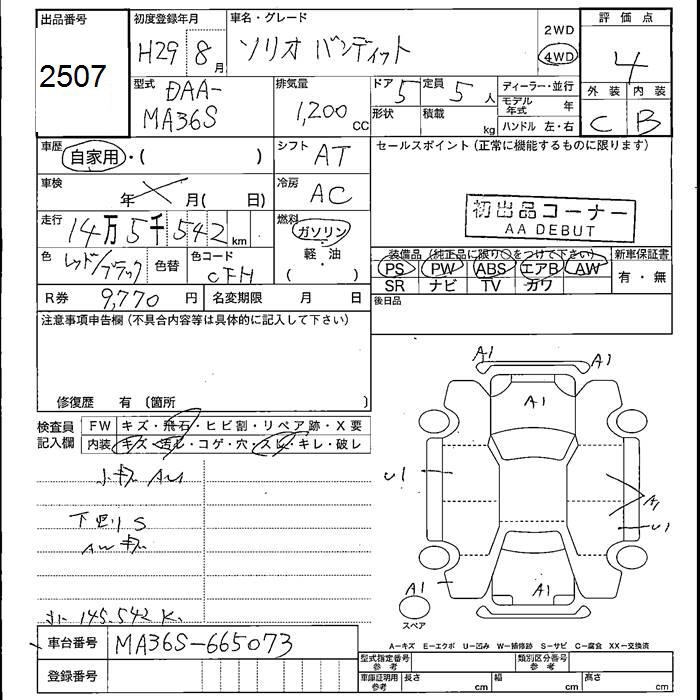 出品番号
2507
初度登録年月
H29 8月
車名・グレード
ソリオ バンディット
2WD
4WD
評価点
4
外装 内装
C B
型式
DAA-
MA36S
排気量
1,200 cc
ドア 5
形状
定員 5 人
積載 kg
ディーラー・並行
モデル年式 年
ハンドル 左・右
車歴
自家用・( )
シフト AT
セールスポイント (正常に機能するものに限ります)
車検
年 月( 日)
冷房 AC
初出品コーナー
AA DEBUT
走行
14万5千542 km
燃料
ガソリン・
軽・油
( )
色 レッド/ブラック
色替
色コード CFH
装備品 (純正品に限り○をつけて下さい)
PS PW ABS エアB AW
SR ナビ TV カワ
新車保証書
有・無
R券 9,770 円
名変期限 月 日
後日品
注意事項申告欄 (不具合内容等は具体的に記入して下さい)
修復歴 有 〔箇所 〕
検査員
記入欄
FW キズ・飛石・ヒビ割・リペア跡・X要
内装 キズ・汚レ・コゲ・穴・スレ・キレ・破レ
小キズ AW
下廻りS
AWキズ
145.542 K
A1
A1
A1
U1
A1
U1
A1
A1
スペア
車台番号 MA36S-665073
登録番号
A−キズ E−エクボ U−凹み W−補修跡 S−サビ C−腐食 XX−交換済
型式指定番号
参考
類別区分番号
参考
車庫証明用
参考
長さ cm
幅 cm
高さ cm